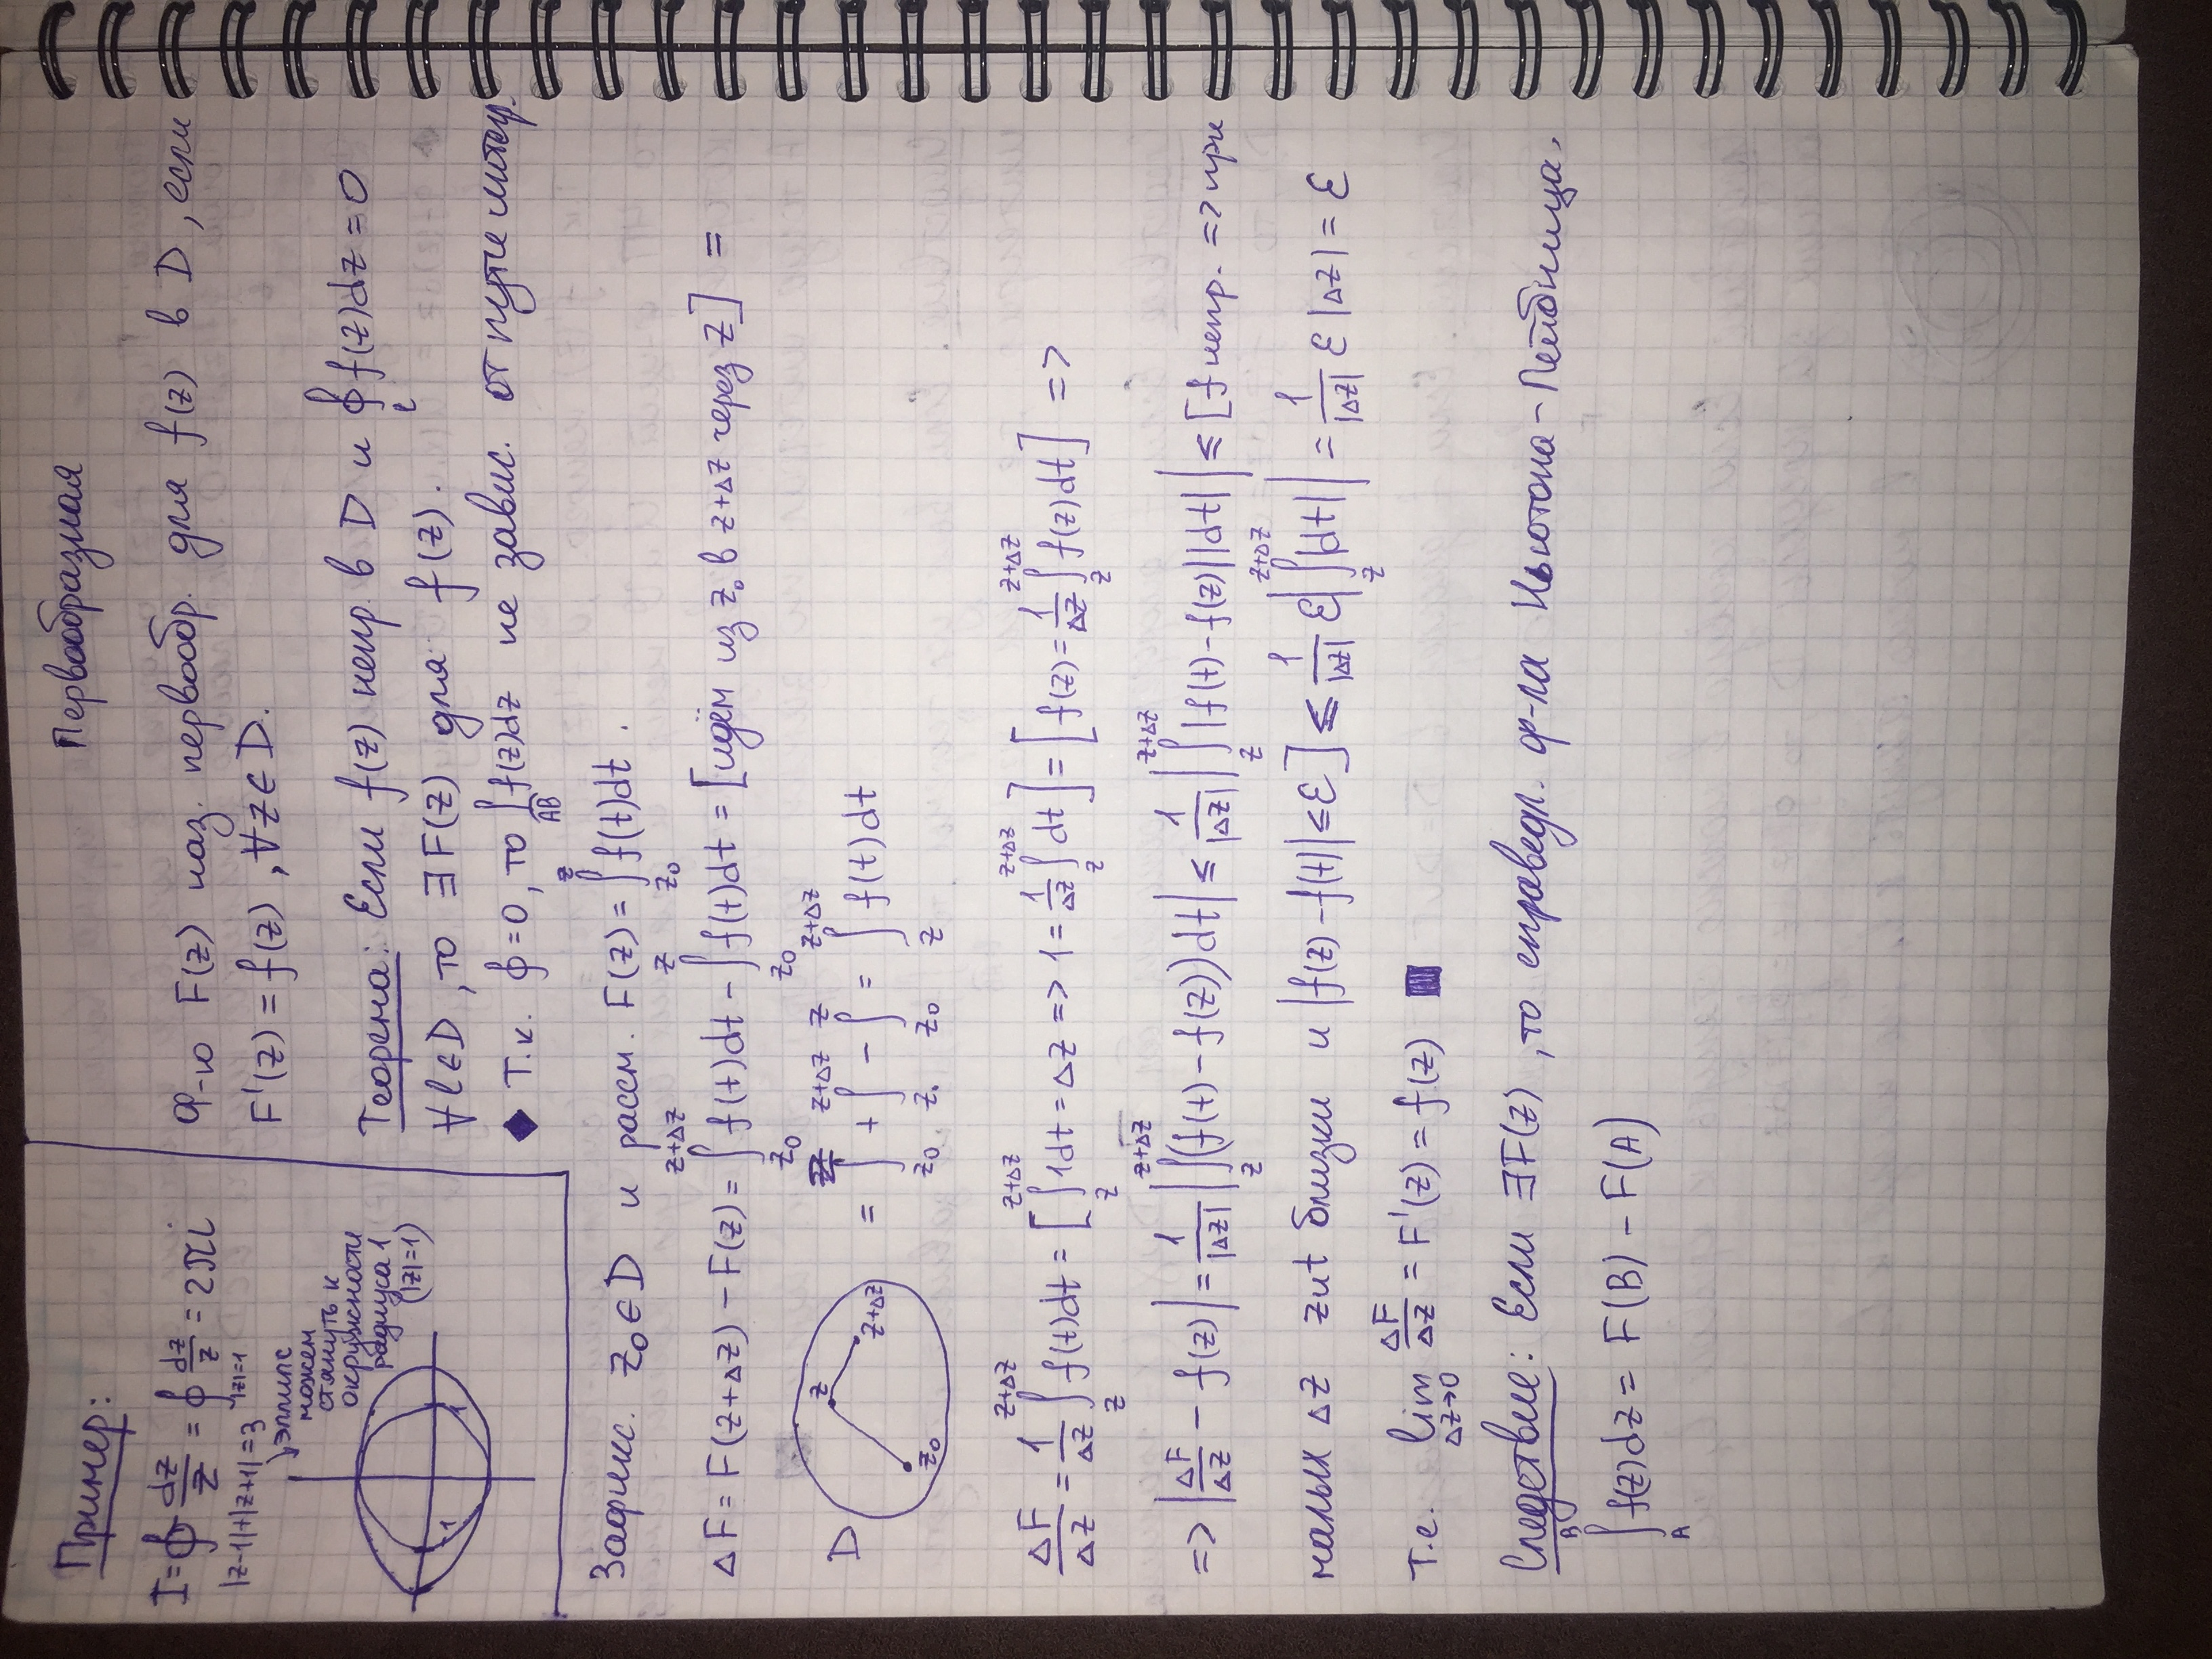 Пример:
I = ∮ dz/z = ∮ dz/z = 2πi
|z-1|+|z+1|=3 |z|=1
эллипс
можем
стянуть к
окружности
радиуса 1
(|z|=1)
-1 1
Первообразная
Ф-ю F(z) наз. первообр. для f(z) в D, если
F'(z) = f(z), ∀z∈D.
Теорема: Если f(z) непр. в D и ∮_l f(z)dz = 0
∀l∈D, то ∃F(z) для f(z).
◆ Т.к. ∮=0, то ∫_AB f(z)dz не завис. от пути интегр.
Зафикс. z₀∈D и рассм. F(z) = ∫_{z₀}^{z} f(t)dt.
ΔF = F(z+Δz) - F(z) = ∫_{z₀}^{z+Δz} f(t)dt - ∫_{z₀}^{z} f(t)dt = [идём из z₀ в z+Δz через z] =
D z z+Δz z₀
= ∫_{z₀}^{z} + ∫_{z}^{z+Δz} - ∫_{z₀}^{z} = ∫_{z}^{z+Δz} f(t)dt
ΔF/Δz = 1/Δz ∫_{z}^{z+Δz} f(t)dt = [∫_{z}^{z+Δz} 1dt = Δz => 1 = 1/Δz ∫_{z}^{z+Δz} dt] = [f(z) = 1/Δz ∫_{z}^{z+Δz} f(z)dt] =>
=> |ΔF/Δz - f(z)| = 1/|Δz| |∫_{z}^{z+Δz} (f(t) - f(z))dt| ≤ 1/|Δz| |∫_{z}^{z+Δz} |f(t) - f(z)||dt|| ≤ [f непр. => при
малых Δz z и t близки и |f(z) - f(t)| ≤ ε] ≤ 1/|Δz| ε|∫_{z}^{z+Δz} |dt|| = 1/|Δz| ε |Δz| = ε
Т.е. lim_{Δz→0} ΔF/Δz = F'(z) = f(z) ■
Следствие: Если ∃F(z), то справедл. ф-ла Ньютона-Лейбница.
∫_A^B f(z)dz = F(B) - F(A)